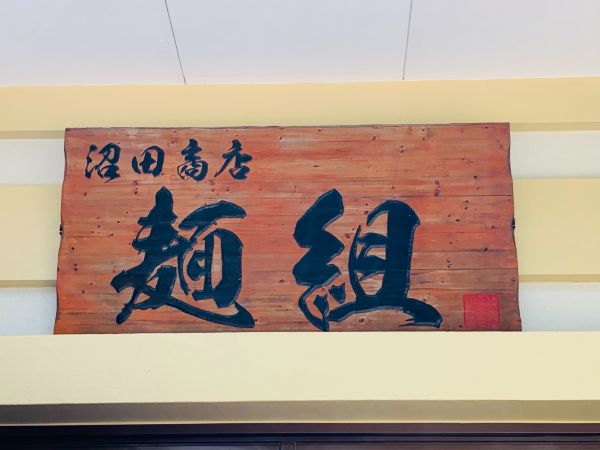 沼田商店
麺組